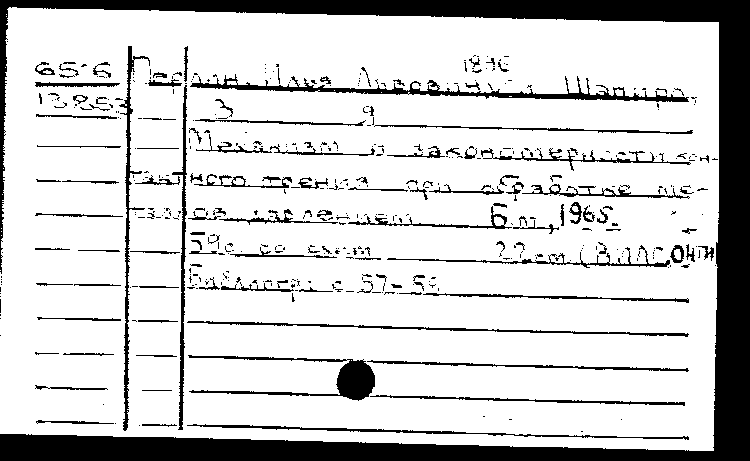 1896
65-6 Перлин, Илья Львович, и Шапиро,
13853 З Я
Механизм и закономерности кон-
тактного трения при обработке ме-
таллов давлением Б.м., 1965.
59с. со схем. 22 см (ОНТИ
Библиогр.: с 57-59